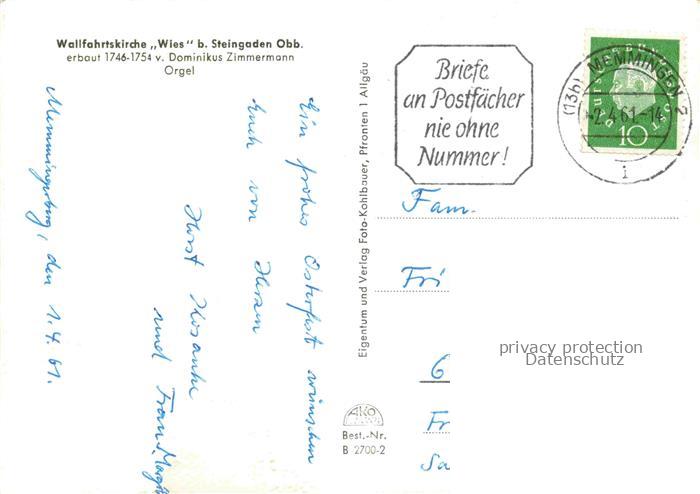 Wallfahrtskirche „Wies" b. Steingaden Obb.
erbaut 1746-1754 v. Dominikus Zimmermann
Orgel
Memmingerberg, den 1.4.61.
Ein frohes Osterfest wünschen
Euch von Herzen
Horst
und Frau
Eigentum und Verlag Foto-Kohlbauer, Pfronten 1 Allgäu
AKO
Best.-Nr.
B 2700-2
Briefe
an Postfächer
nie ohne
Nummer!
(13b) MEMMINGEN 2
-2.4.61-14
i
DEUTSCHE BUNDESPOST
10
Fam.
Fri
6
Fr
Sa
privacy protection
Datenschutz